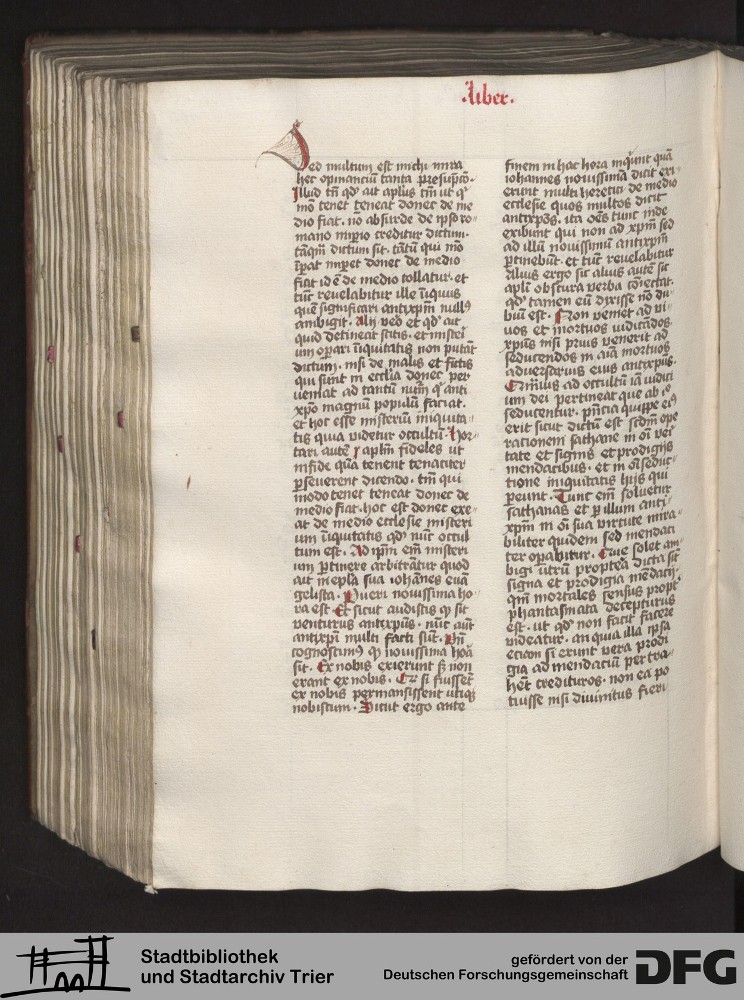 .liber.
Sed multum est michi mira
hec opinanciū tanta p̄supcō.
Illud tn̄ qd' ait aplus tm̄ ut qͥ
mō tenet teneat donec de me
dio fiat. nō absurde de ipso ro
mano imperio creditur dictum.
tāqm̄ dictum sit. tātū qui mō
īpat imperet donec de medio
fiat id ē de medio tollatur. et
tūc reuelabitur ille iīquus
quē significari antixpm̄ null9
ambigit. Alij vero et qd' ait
quid detineat scitis. et misteri
um operari iīquitatis non putāt
dictum. nisi de malis et fictis
qui sunt in ecclia donec per
ueniat ad tantū nūm qͥ anti
xpo magnū populū faciat.
et hoc esse misteriū iniquita
tis quia videtur occultū. hor
tari autē aplm̄ fideles ut
in fide quā tenent tenaciter
pseuerent dicendo. tm̄ qui
modo tenet teneat donec de
medio fiat. hoc est donec exe
at de medio ecclesie misteri
um iīquitatis qd' nūc occul
tum est. Ad ip̄m em̄ misteri
um ptinere arbitrātur quod
ait in epla sua iohānes euā
gelista. Pueri nouissima ho
ra est. Et sicut audistis qͥ sit
venturus antixpus. nūc aūt
antixpi multi facti sūt. Vn̄
cognoscim9 qͥ nouissima hora
sit. Ex nobis exierunt s3 non
erant ex nobis. Qr si fuissēt
ex nobis permansissent utiqͥ
nobiscum. Sicut ergo ante
finem in hac hora inquiunt quā
iohannes nouissimā dicit exi
erunt multi heretici de medio
ecclesie quos multos dicit
antixpos. ita oēs tunc inde
exibunt qui non ad xpm̄ sed
ad illū nouissimū antixpm̄
ptinebūt. et tūc reuelabitur
Alius ergo sic alius autē sic
apli obscura verba cōiectat.
qd' tamen eū dixisse nō du
biū est. Non veniet ad vi
uos et mortuos iudicādos
xpus nisi prius venerit ad
seducendos in aīa mortuos
aduersarius eius antixpus.
Quāuis ad occultū iā iudici
um dei pertineat que ab eo
seducentur. pn̄cia quippe ei9
erit sicut dictū est scdm̄ ope
rationem sathane in oī vir
tute et signis et prodigijs
mendacibus. et in oī seduc
tione iniquitatis hijs qui
pereunt. Tunc em̄ soluetur
sathanas et p illum anti
xpm̄ in oī sua virtute mira
biliter quidem sed mendaci
ter opabitur. Que solet am
bigi utrū propterea dicta sit
signa et prodigia mēdacij.
qm̄ mortales sensus propt'
phantasmata decepturus
est. ut qd' non facit facere
videatur. an quia illa ipsa
eciam si erunt vera prodi
gia ad mendaciū pertra
hēt credituros. non ea po
tuisse nisi diuinitus fieri
Stadtbibliothek
und Stadtarchiv Trier
gefördert von der
Deutschen Forschungsgemeinschaft
DFG